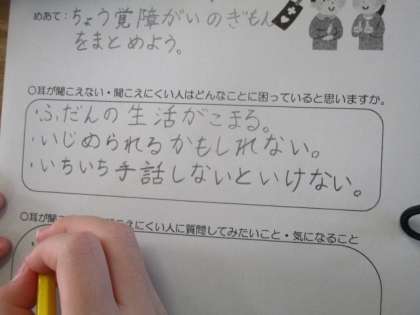 めあて：ちょう覚障がいのぎもん
をまとめよう。
○耳が聞こえない・聞こえにくい人はどんなことに困っていると思いますか。
・ふだんの生活がこまる。
・いじめられるかもしれない。
・いちいち手話しないといけない。
○耳が聞こ
こえにくい人に質問してみたいこと・気になること